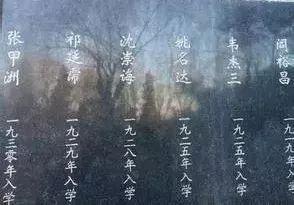 阎裕昌
一九二九年入学
韦杰三
一九二五年入学
姚名达
一九二五年入学
沈崇诲
一九二八年入学
祁延霈
一九二九年入学
张甲洲
一九三零年入学